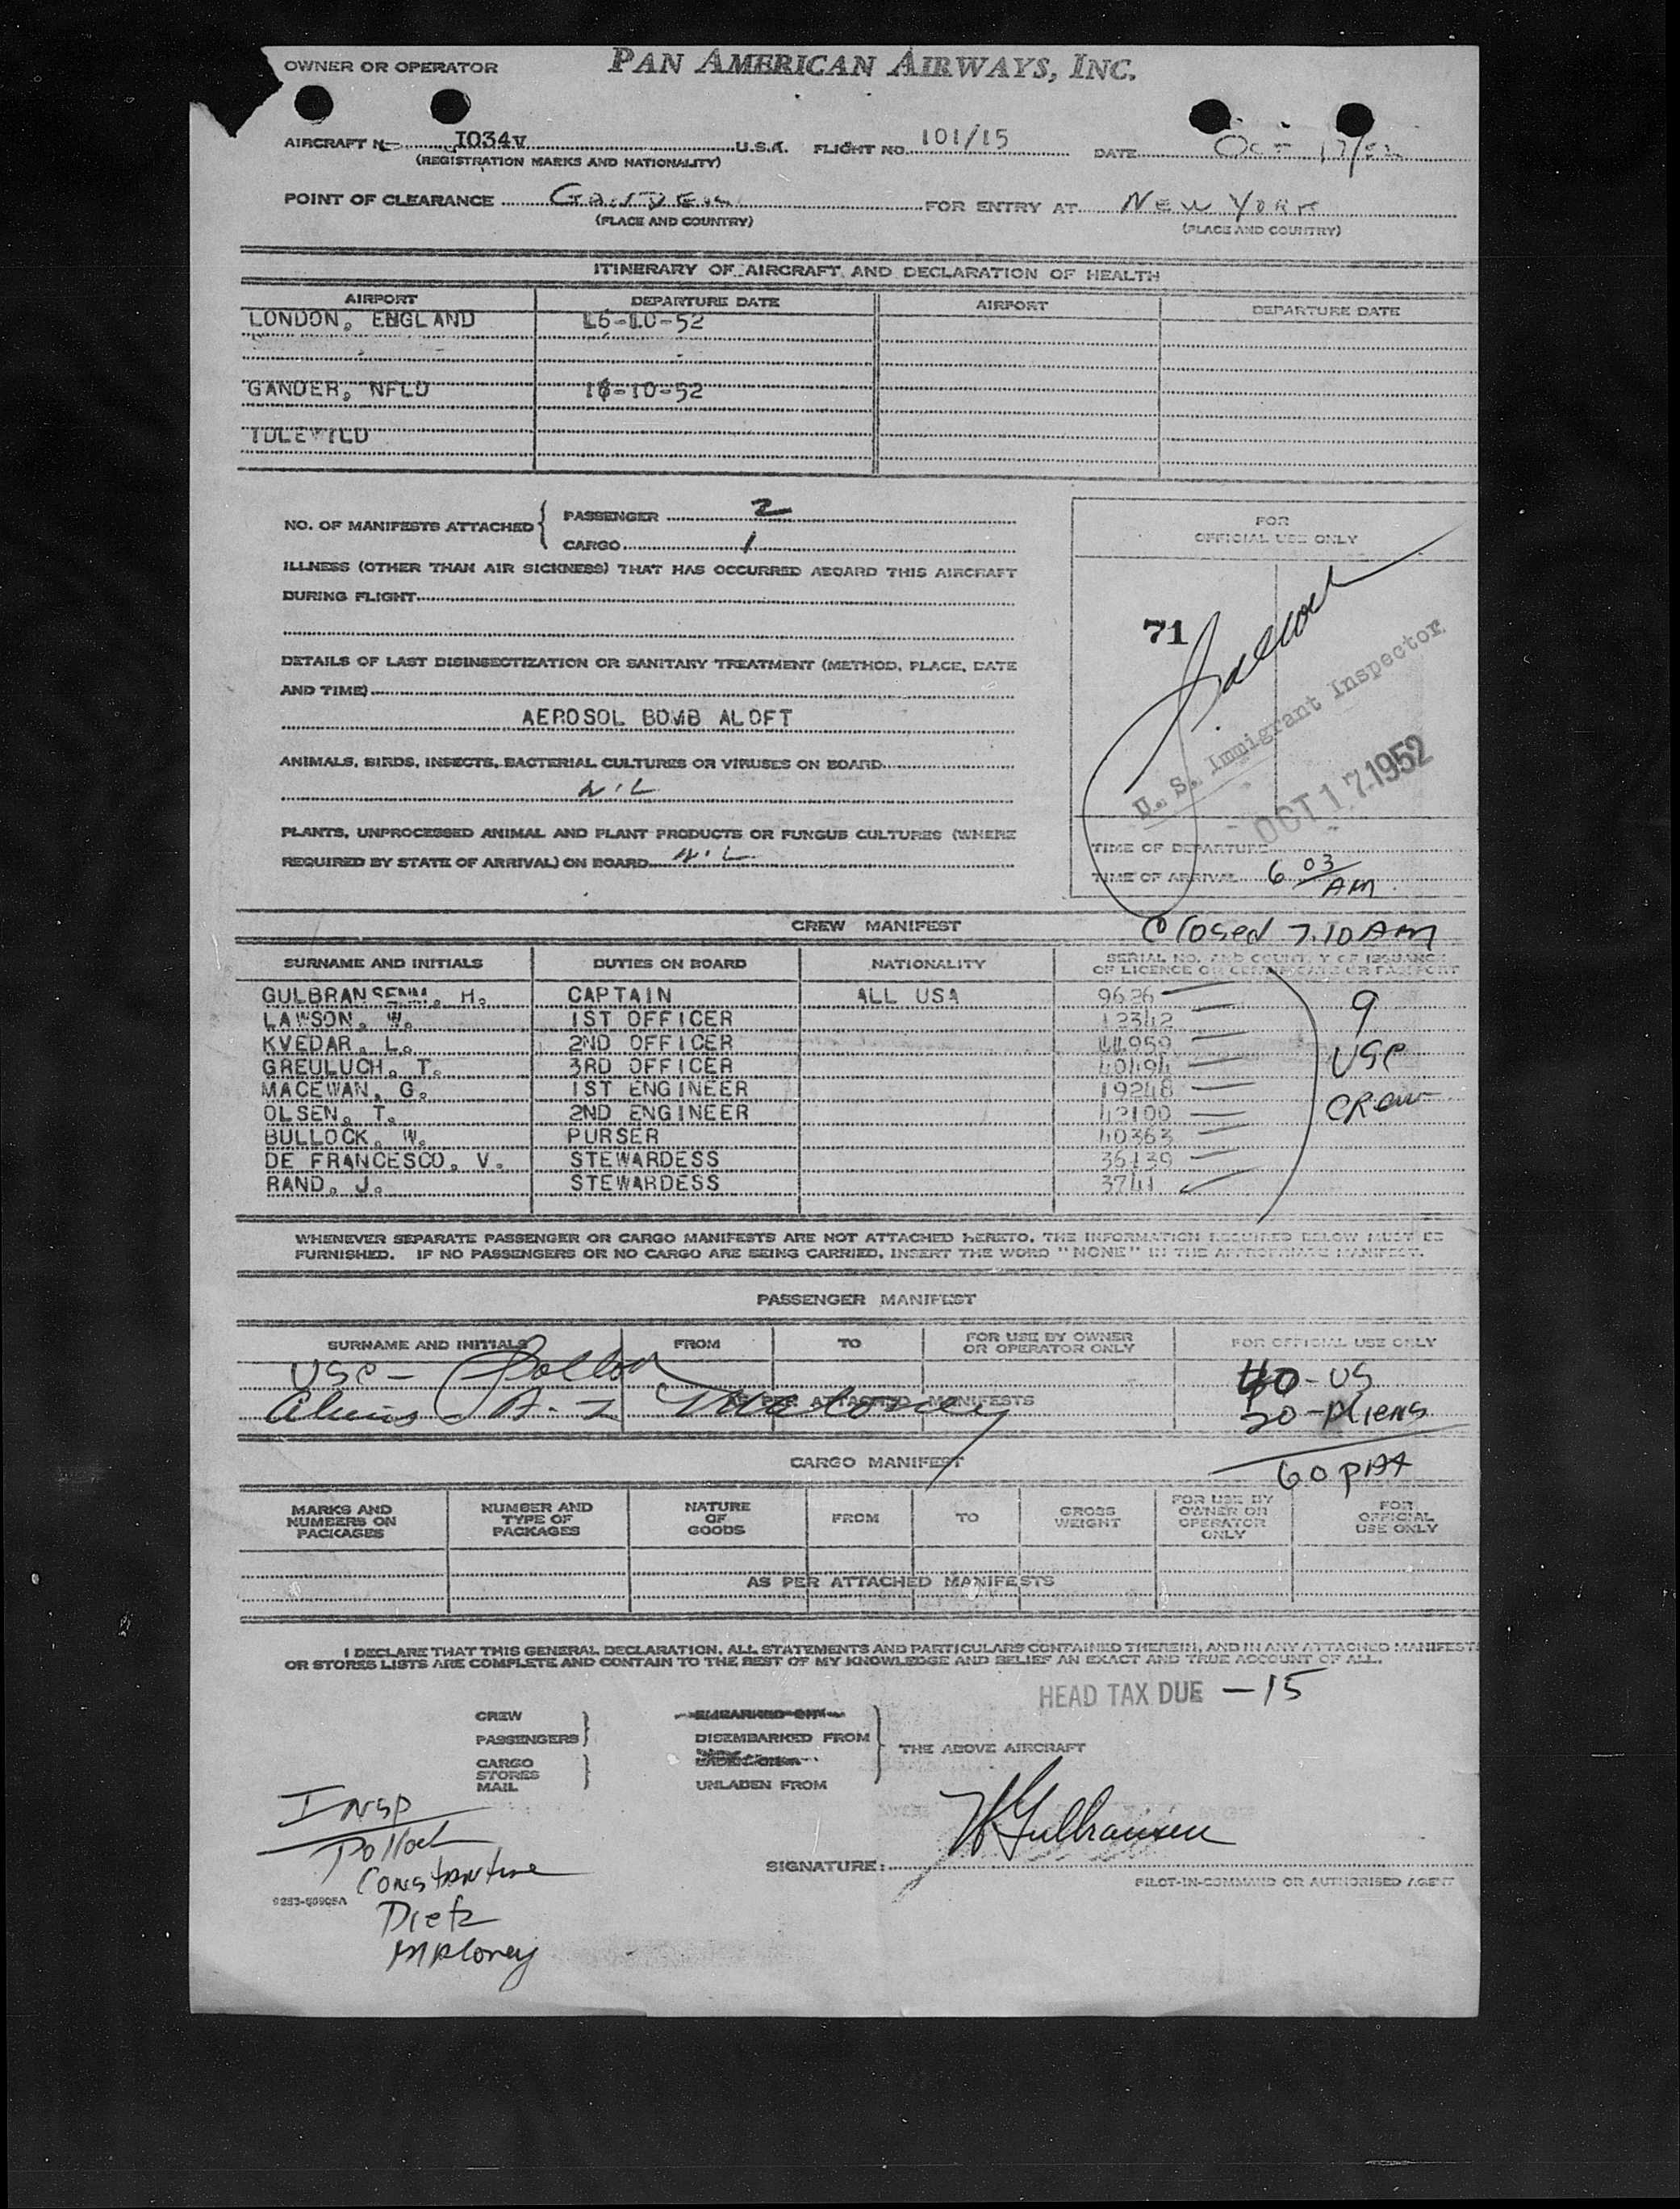 OWNER OR OPERATOR PAN AMERICAN AIRWAYS, INC.
AIRCRAFT N 1034V U.S.A. FLIGHT NO. 101/15 DATE Oct 17/52
(REGISTRATION MARKS AND NATIONALITY)
POINT OF CLEARANCE GANDER FOR ENTRY AT NEW YORK
(PLACE AND COUNTRY) (PLACE AND COUNTRY)
ITINERARY OF AIRCRAFT AND DECLARATION OF HEALTH
AIRPORT DEPARTURE DATE AIRPORT DEPARTURE DATE
LONDON, ENGLAND 16-10-52
GANDER, NFLD 16-10-52
IDLEWILD
NO. OF MANIFESTS ATTACHED { PASSENGER 2
CARGO 1
FOR
OFFICIAL USE ONLY
ILLNESS (OTHER THAN AIR SICKNESS) THAT HAS OCCURRED ABOARD THIS AIRCRAFT
DURING FLIGHT
71
Pollock
U. S. Immigrant Inspector
OCT 17 1952
DETAILS OF LAST DISINSECTIZATION OR SANITARY TREATMENT (METHOD, PLACE, DATE
AND TIME)
AEROSOL BOMB ALOFT
ANIMALS, BIRDS, INSECTS, BACTERIAL CULTURES OR VIRUSES ON BOARD
NIL
PLANTS, UNPROCESSED ANIMAL AND PLANT PRODUCTS OR FUNGUS CULTURES (WHERE
REQUIRED BY STATE OF ARRIVAL) ON BOARD NIL
TIME OF DEPARTURE
TIME OF ARRIVAL 6 03 AM
CREW MANIFEST Closed 7.10 AM
SURNAME AND INITIALS DUTIES ON BOARD NATIONALITY SERIAL NO. AND COUNTRY OF ISSUANCE
OF LICENCE OR CERTIFICATE OR PASSPORT
GULBRANSENM, H. CAPTAIN ALL USA 9626
LAWSON, W. 1ST OFFICER 12342
KVEDAR, L. 2ND OFFICER 44959
GREULUCH, T. 3RD OFFICER 40494
MACEWAN, G. 1ST ENGINEER 19248
OLSEN, T. 2ND ENGINEER 42100
BULLOCK, W. PURSER 40363
DE FRANCESCO, V. STEWARDESS 36139
RAND, J. STEWARDESS 3741
9
USC
CREW
WHENEVER SEPARATE PASSENGER OR CARGO MANIFESTS ARE NOT ATTACHED HERETO, THE INFORMATION REQUIRED BELOW MUST BE
FURNISHED. IF NO PASSENGERS OR NO CARGO ARE BEING CARRIED, INSERT THE WORD "NONE" IN THE APPROPRIATE MANIFEST.
PASSENGER MANIFEST
SURNAME AND INITIALS FROM TO FOR USE BY OWNER
OR OPERATOR ONLY FOR OFFICIAL USE ONLY
USC - Pollock 40 - US
Aliens - Maloney AS PER ATTACHED MANIFESTS 20 - Aliens
CARGO MANIFEST 60
MARKS AND
NUMBERS ON
PACKAGES NUMBER AND
TYPE OF
PACKAGES NATURE
OF
GOODS FROM TO GROSS
WEIGHT FOR USE BY
OWNER OR
OPERATOR
ONLY FOR
OFFICIAL
USE ONLY
AS PER ATTACHED MANIFESTS
I DECLARE THAT THIS GENERAL DECLARATION, ALL STATEMENTS AND PARTICULARS CONTAINED THEREIN, AND IN ANY ATTACHED MANIFEST
OR STORES LISTS ARE COMPLETE AND CONTAIN TO THE BEST OF MY KNOWLEDGE AND BELIEF AN EXACT AND TRUE ACCOUNT OF ALL.
HEAD TAX DUE - 15
CREW EMBARKED ON
PASSENGERS DISEMBARKED FROM
THE ABOVE AIRCRAFT
CARGO
STORES
MAIL UNLADEN FROM
Insp
Pollock
Constantine
Dietz
Maloney
H Gulbransen
SIGNATURE:
PILOT-IN-COMMAND OR AUTHORISED AGENT